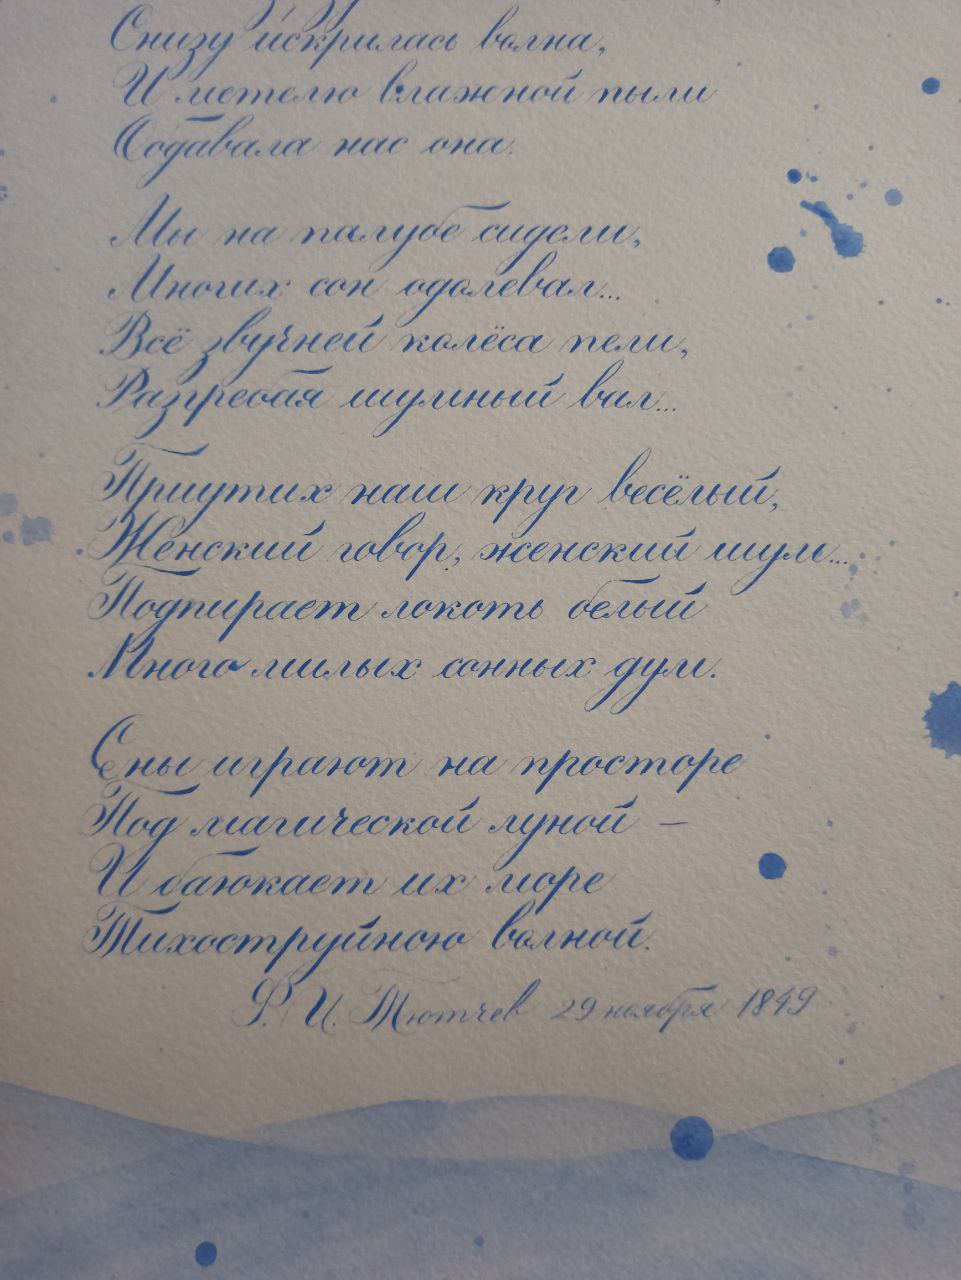 Снизу искрилась волна,
И метелю влажной пыли
Обдавала нас она.
Мы на палубе сидели,
Многих сон одолевал...
Всё звучней колёса пели,
Разгребая шумный вал...
Приутих наш круг весёлый,
Женский говор, женский шум...
Подпирает локоть белый
Много милых сонных дум.
Сны играют на просторе
Под магической луной –
И баюкает их море
Тихоструйною волной.
Ф. И. Тютчев 29 ноября 1849